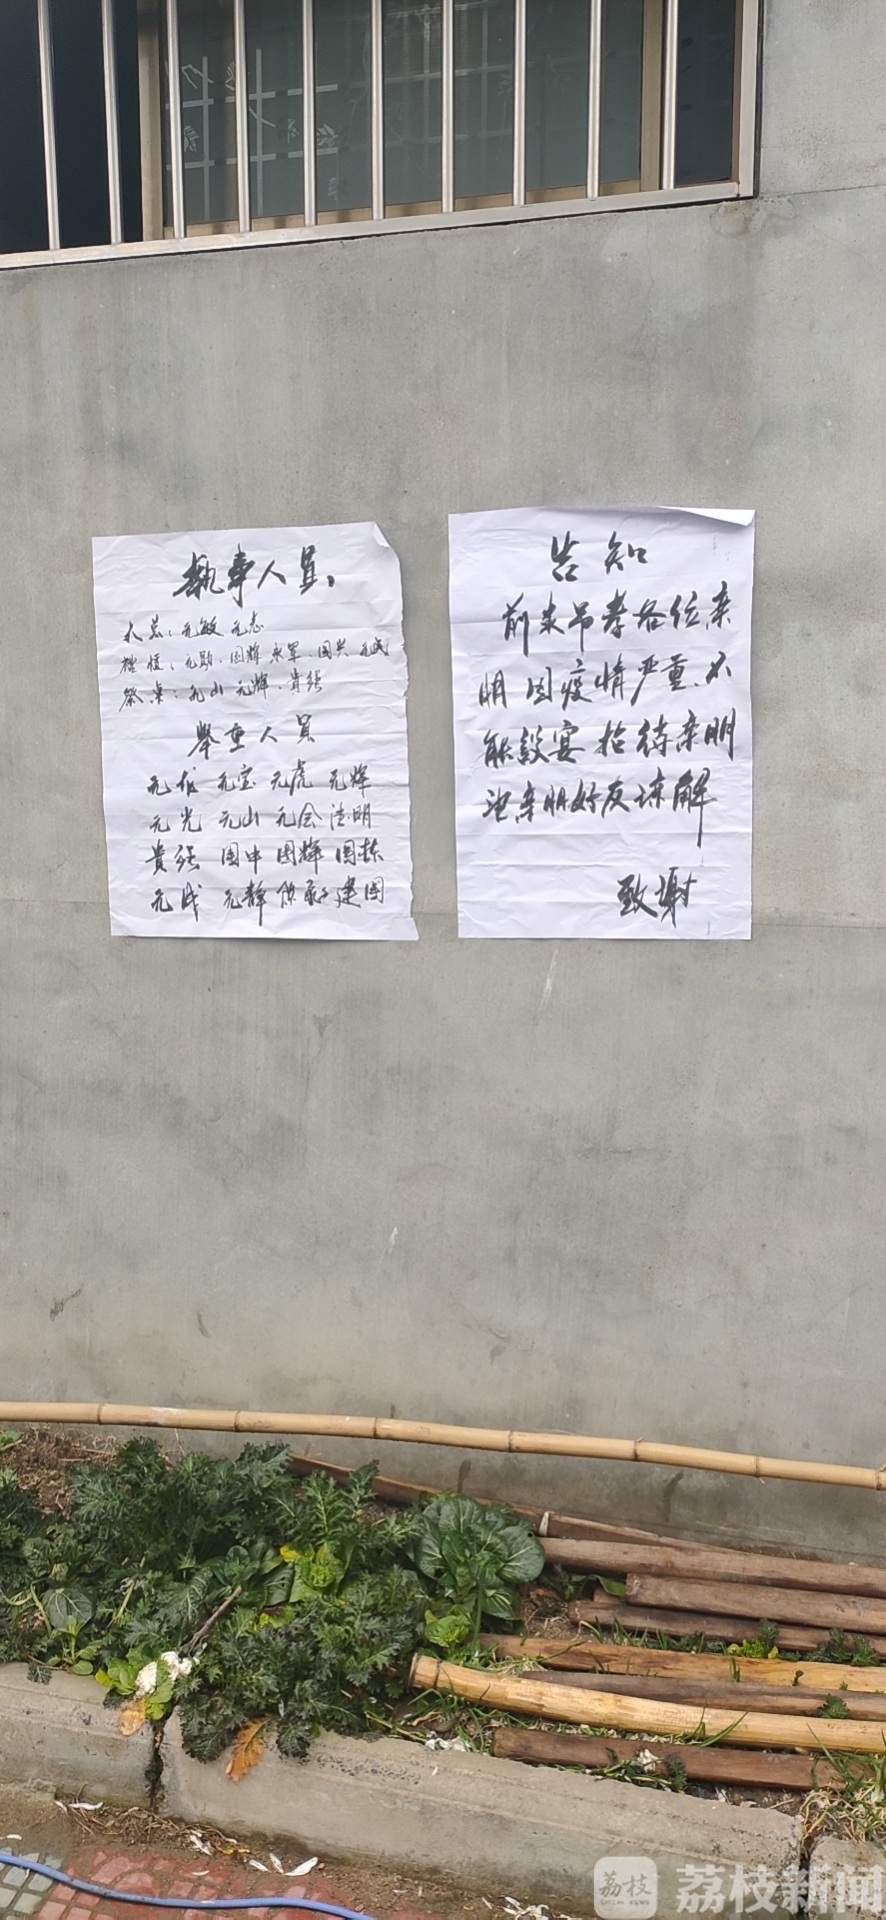 执事人员
大总：元敏 元志
元勋、国辉 永军、国兴 元民
祭桌：元山 元辉、貴强
举重人员
元作 元宝 元虎 元辉
元光 元山 元会 法明
貴强 国中 国辉 国栋
元成 元静 建国
告知
前来吊孝各位亲
朋 因疫情严重、不
能設宴 招待亲朋
亲朋好友谅解
致谢
荔枝
荔枝新闻